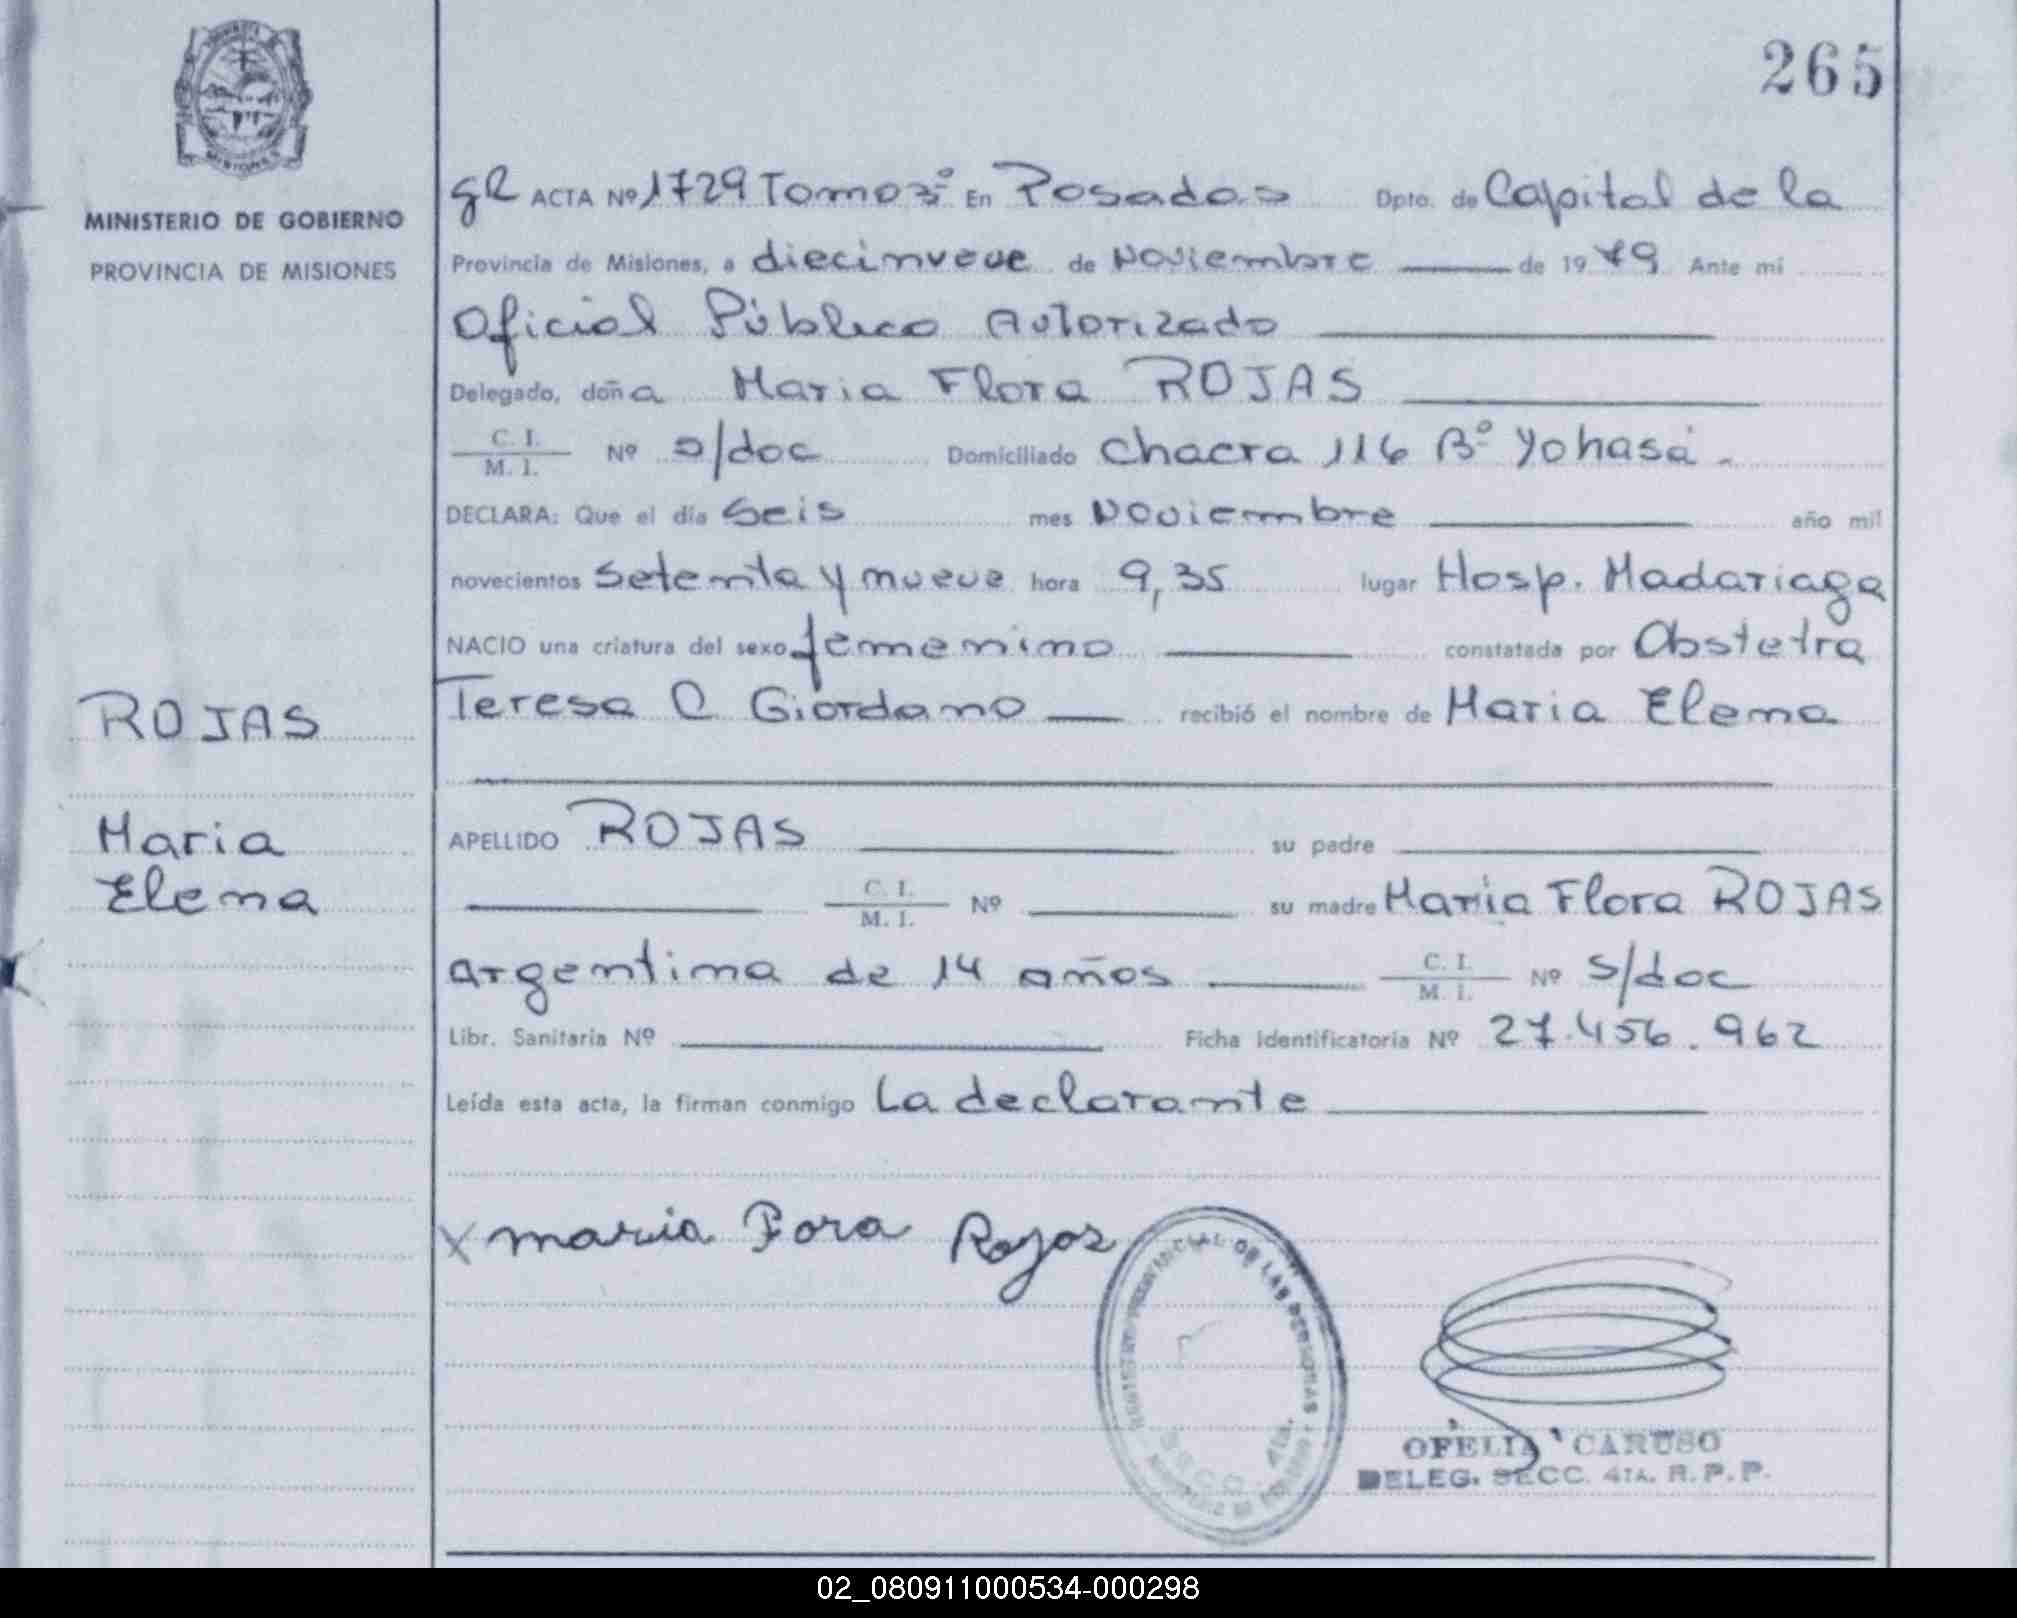 265
MISIONES
MINISTERIO DE GOBIERNO
PROVINCIA DE MISIONES
ROJAS
Maria
Elena
gR ACTA Nº 1729 Tomo 3º En Posadas Dpto. de Capital de la
Provincia de Misiones, a diecinueve de Noviembre de 1979 Ante mi
Oficial Público Autorizado
Delegado, doña Maria Flora ROJAS
C. I.
M. I. Nº s/doc Domiciliado Chacra 116 Bº Yohasá.
DECLARA: Que el día Seis mes Noviembre año mil
novecientos Setenta y nueve hora 9,35 lugar Hosp. Madariaga
NACIO una criatura del sexo femenino constatada por Obstetra
Teresa C Giordano recibió el nombre de Maria Elena
APELLIDO ROJAS su padre
C. I.
M. I. Nº su madre Maria Flora ROJAS
argentina de 14 años C. I.
M. I. Nº S/doc
Libr. Sanitaria Nº Ficha Identificatoria Nº 27.456.962
Leída esta acta, la firman conmigo La declarante
x maria Fora Rojas
REGISTRO PROVINCIAL DE LAS PERSONAS
SECC. 4ta.
OFELIA CARUSO
DELEG. SECC. 4TA. R.P.P.
02_080911000534-000298